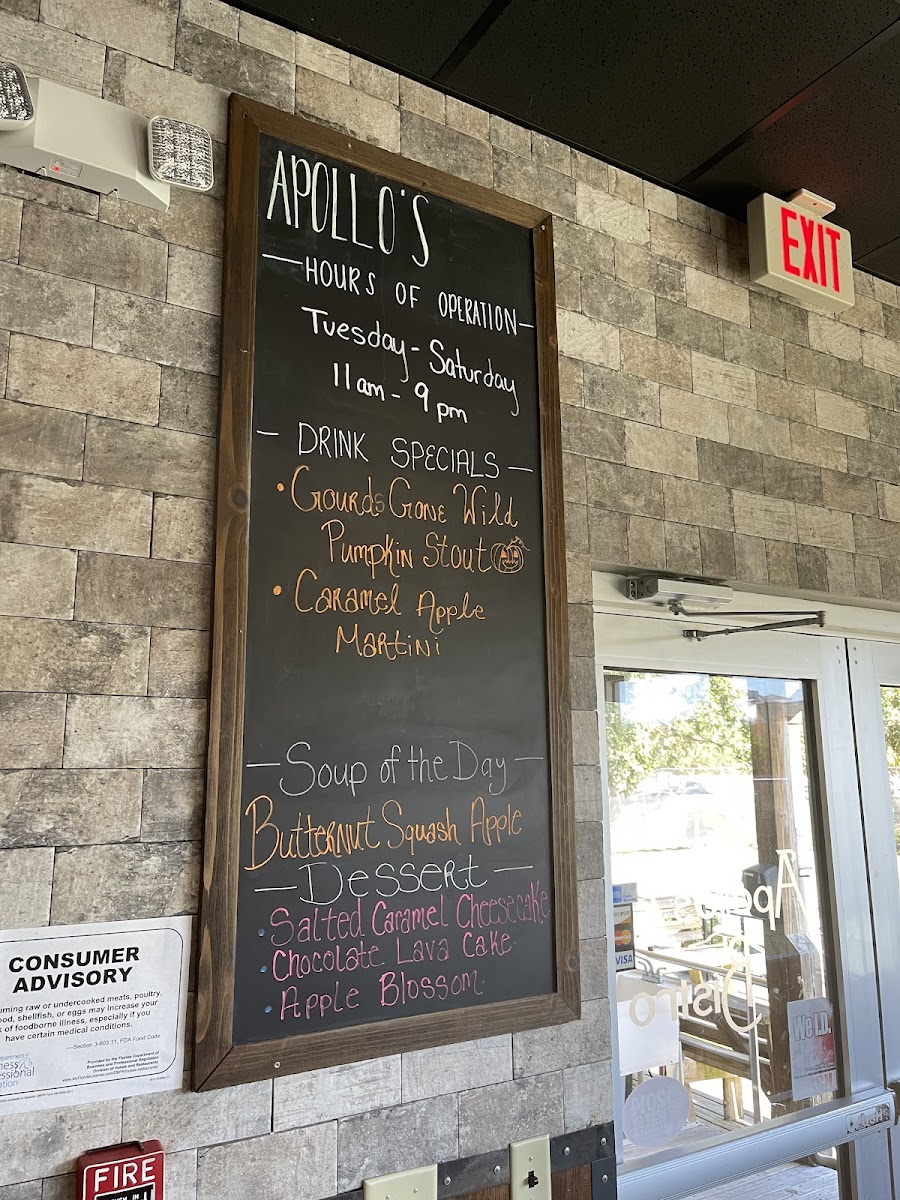 APOLLO'S
—HOURS OF OPERATION—
Tuesday - Saturday
11am - 9pm
— DRINK SPECIALS —
• Gourds Gone Wild
Pumpkin Stout
• Caramel Apple
Martini
— Soup of the Day —
Butternut Squash Apple
— Dessert —
• Salted Caramel Cheesecake
• Chocolate Lava Cake
• Apple Blossom
EXIT
CONSUMER
ADVISORY
uming raw or undercooked meats, poultry,
ood, shellfish, or eggs may increase your
k of foodborne illness, especially if you
have certain medical conditions.
—Section 3-603.11, FDA Food Code
Provided by the Florida Department of
Business and Professional Regulation
Division of Hotels and Restaurants
Bistro
VISA
FIRE